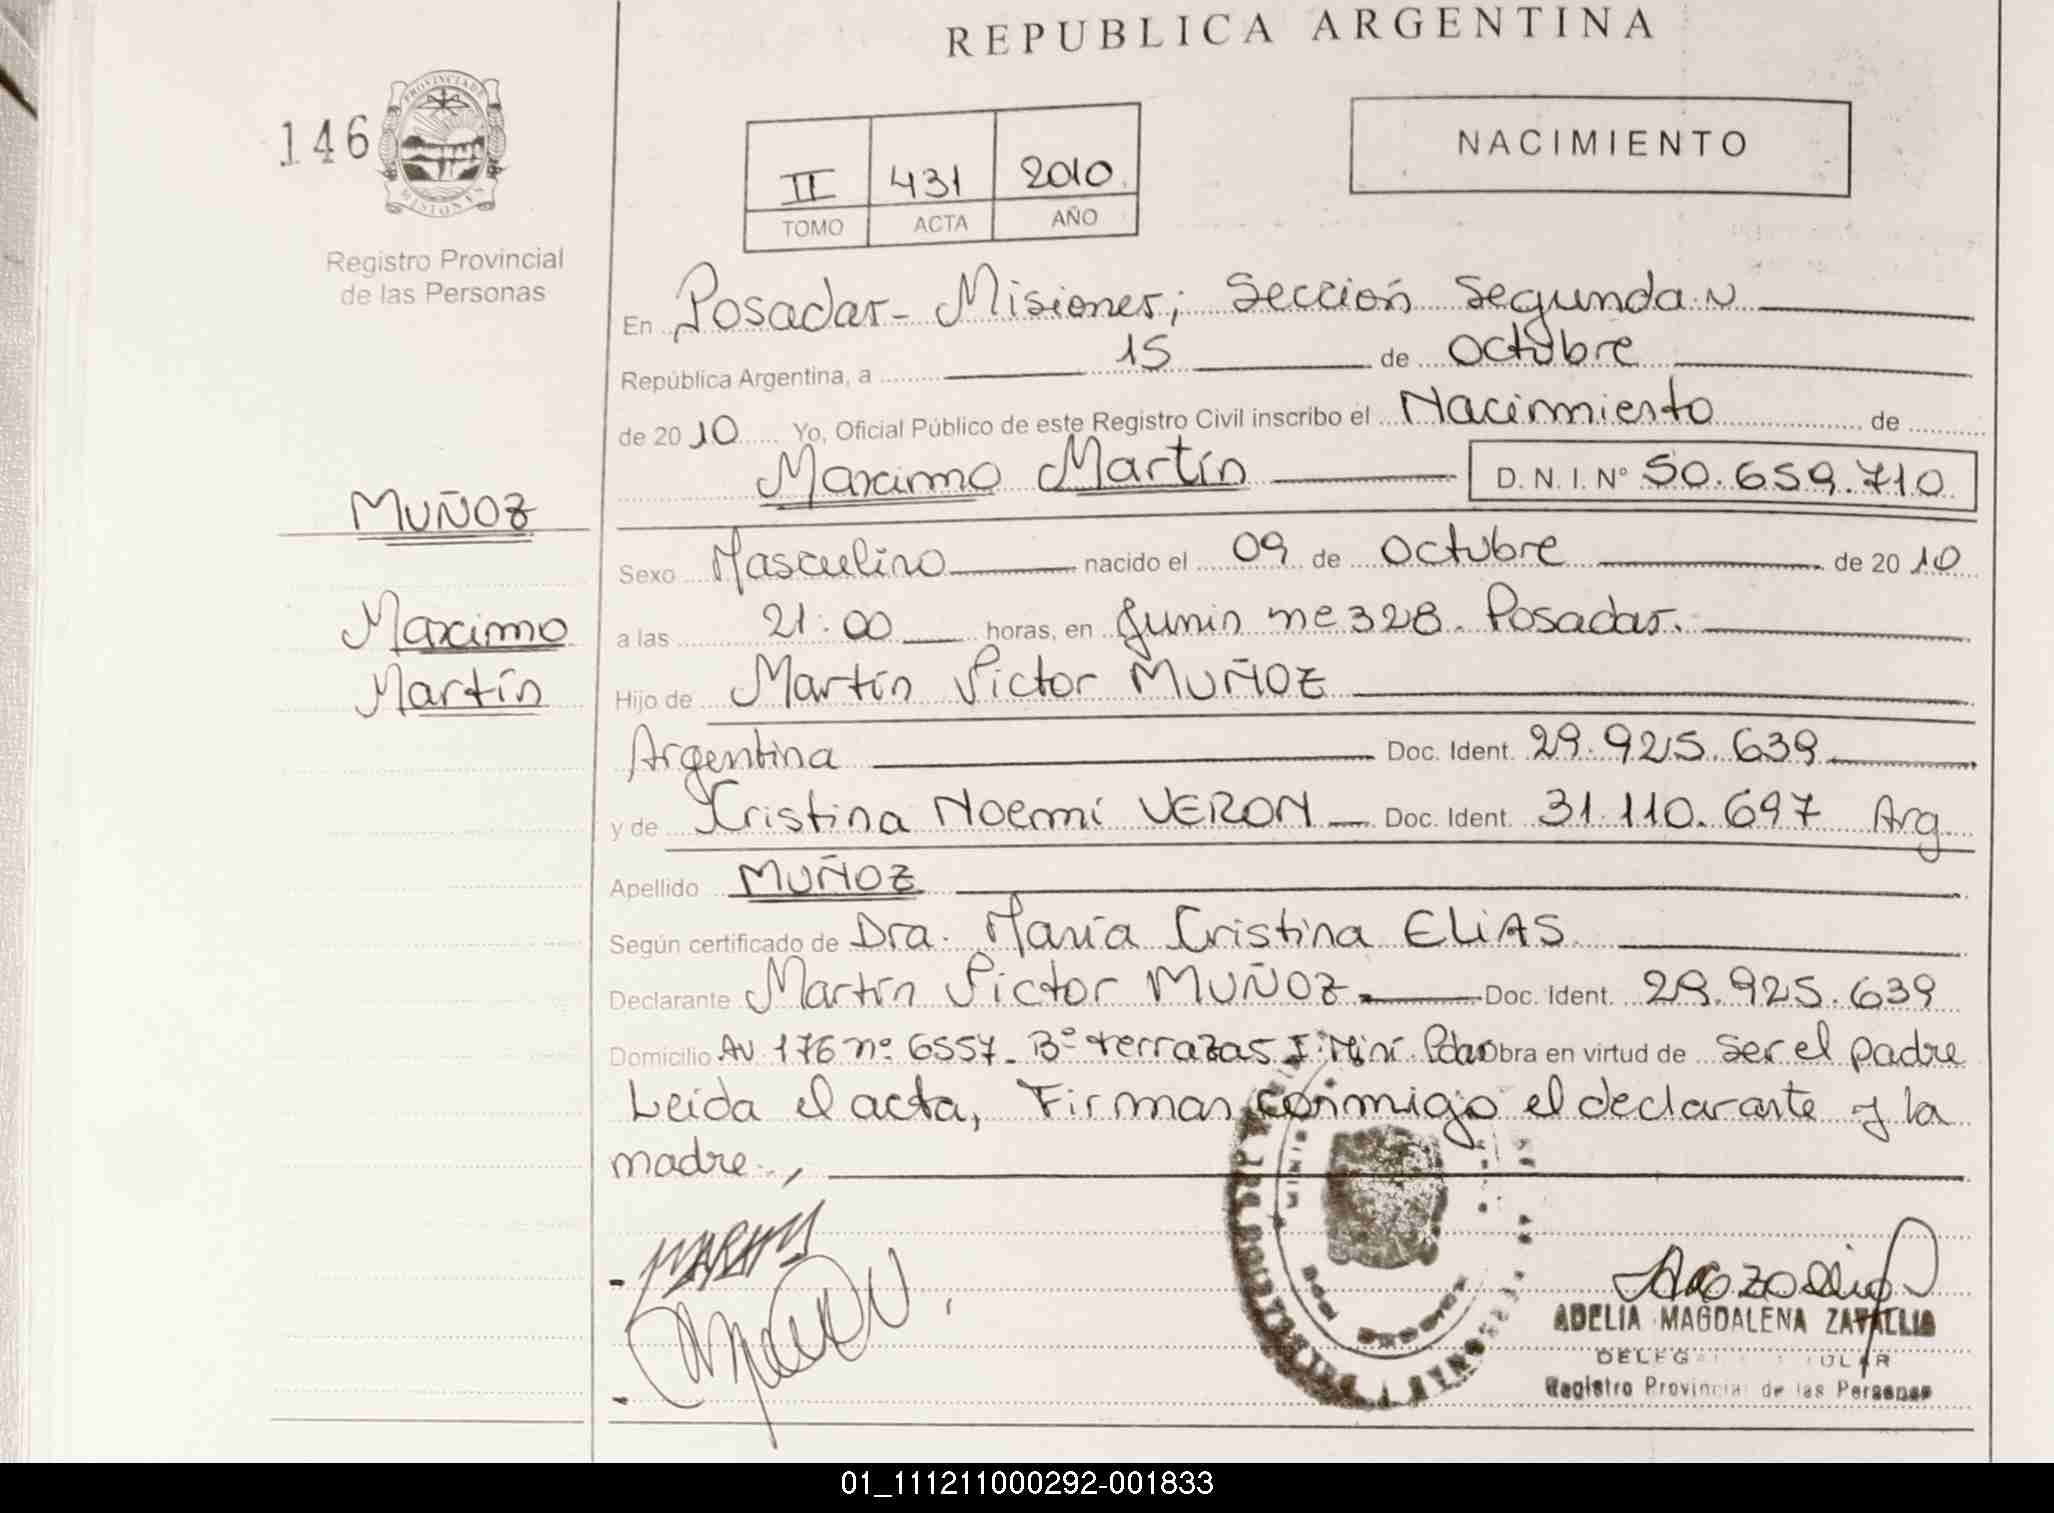 REPUBLICA ARGENTINA
146
PROVINCIA DE
MISIONES
Registro Provincial
de las Personas
NACIMIENTO
II 431 2010
TOMO ACTA AÑO
En Posadas - Misiones; Sección Segunda
República Argentina, a 15 de Octubre
de 2010 Yo, Oficial Público de este Registro Civil inscribo el Nacimiento de
Maximo Martín D. N. I. Nº 50.659.710
MUÑOZ
Maximo
Martín
Sexo Masculino nacido el 09 de Octubre de 2010
a las 21:00 horas, en Junin nº 328. Posadas.
Hijo de Martín Victor MUÑOZ
Argentina Doc. Ident. 29.925.639
y de Cristina Noemí VERON Doc. Ident. 31.110.697 Arg
Apellido MUÑOZ
Según certificado de Dra. María Cristina ELIAS
Declarante Martín Victor MUÑOZ Doc. Ident. 29.925.639
Domicilio AV 176 nº 6557. Bº terrazas I. Mini. Pdas Obra en virtud de ser el padre
Leída el acta, Firman conmigo el declarante y la
madre.,
ADELIA MAGDALENA ZAVALLIA
Registro Provincial de las Personas
01_111211000292-001833